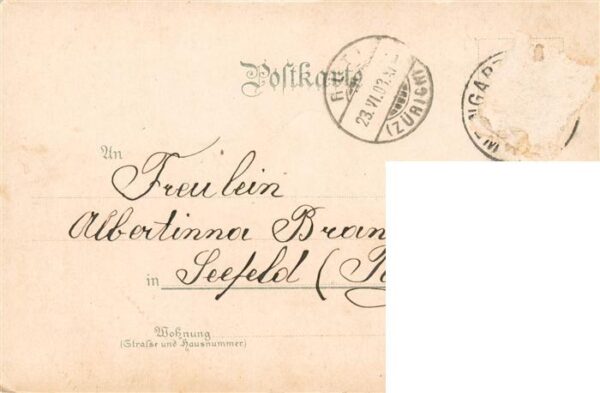 Postkarte
23.VI.03
(ZÜRICH)
An
Freulein
Albertinna Bran
in Seefeld (
Wohnung
(Straße und Hausnummer)